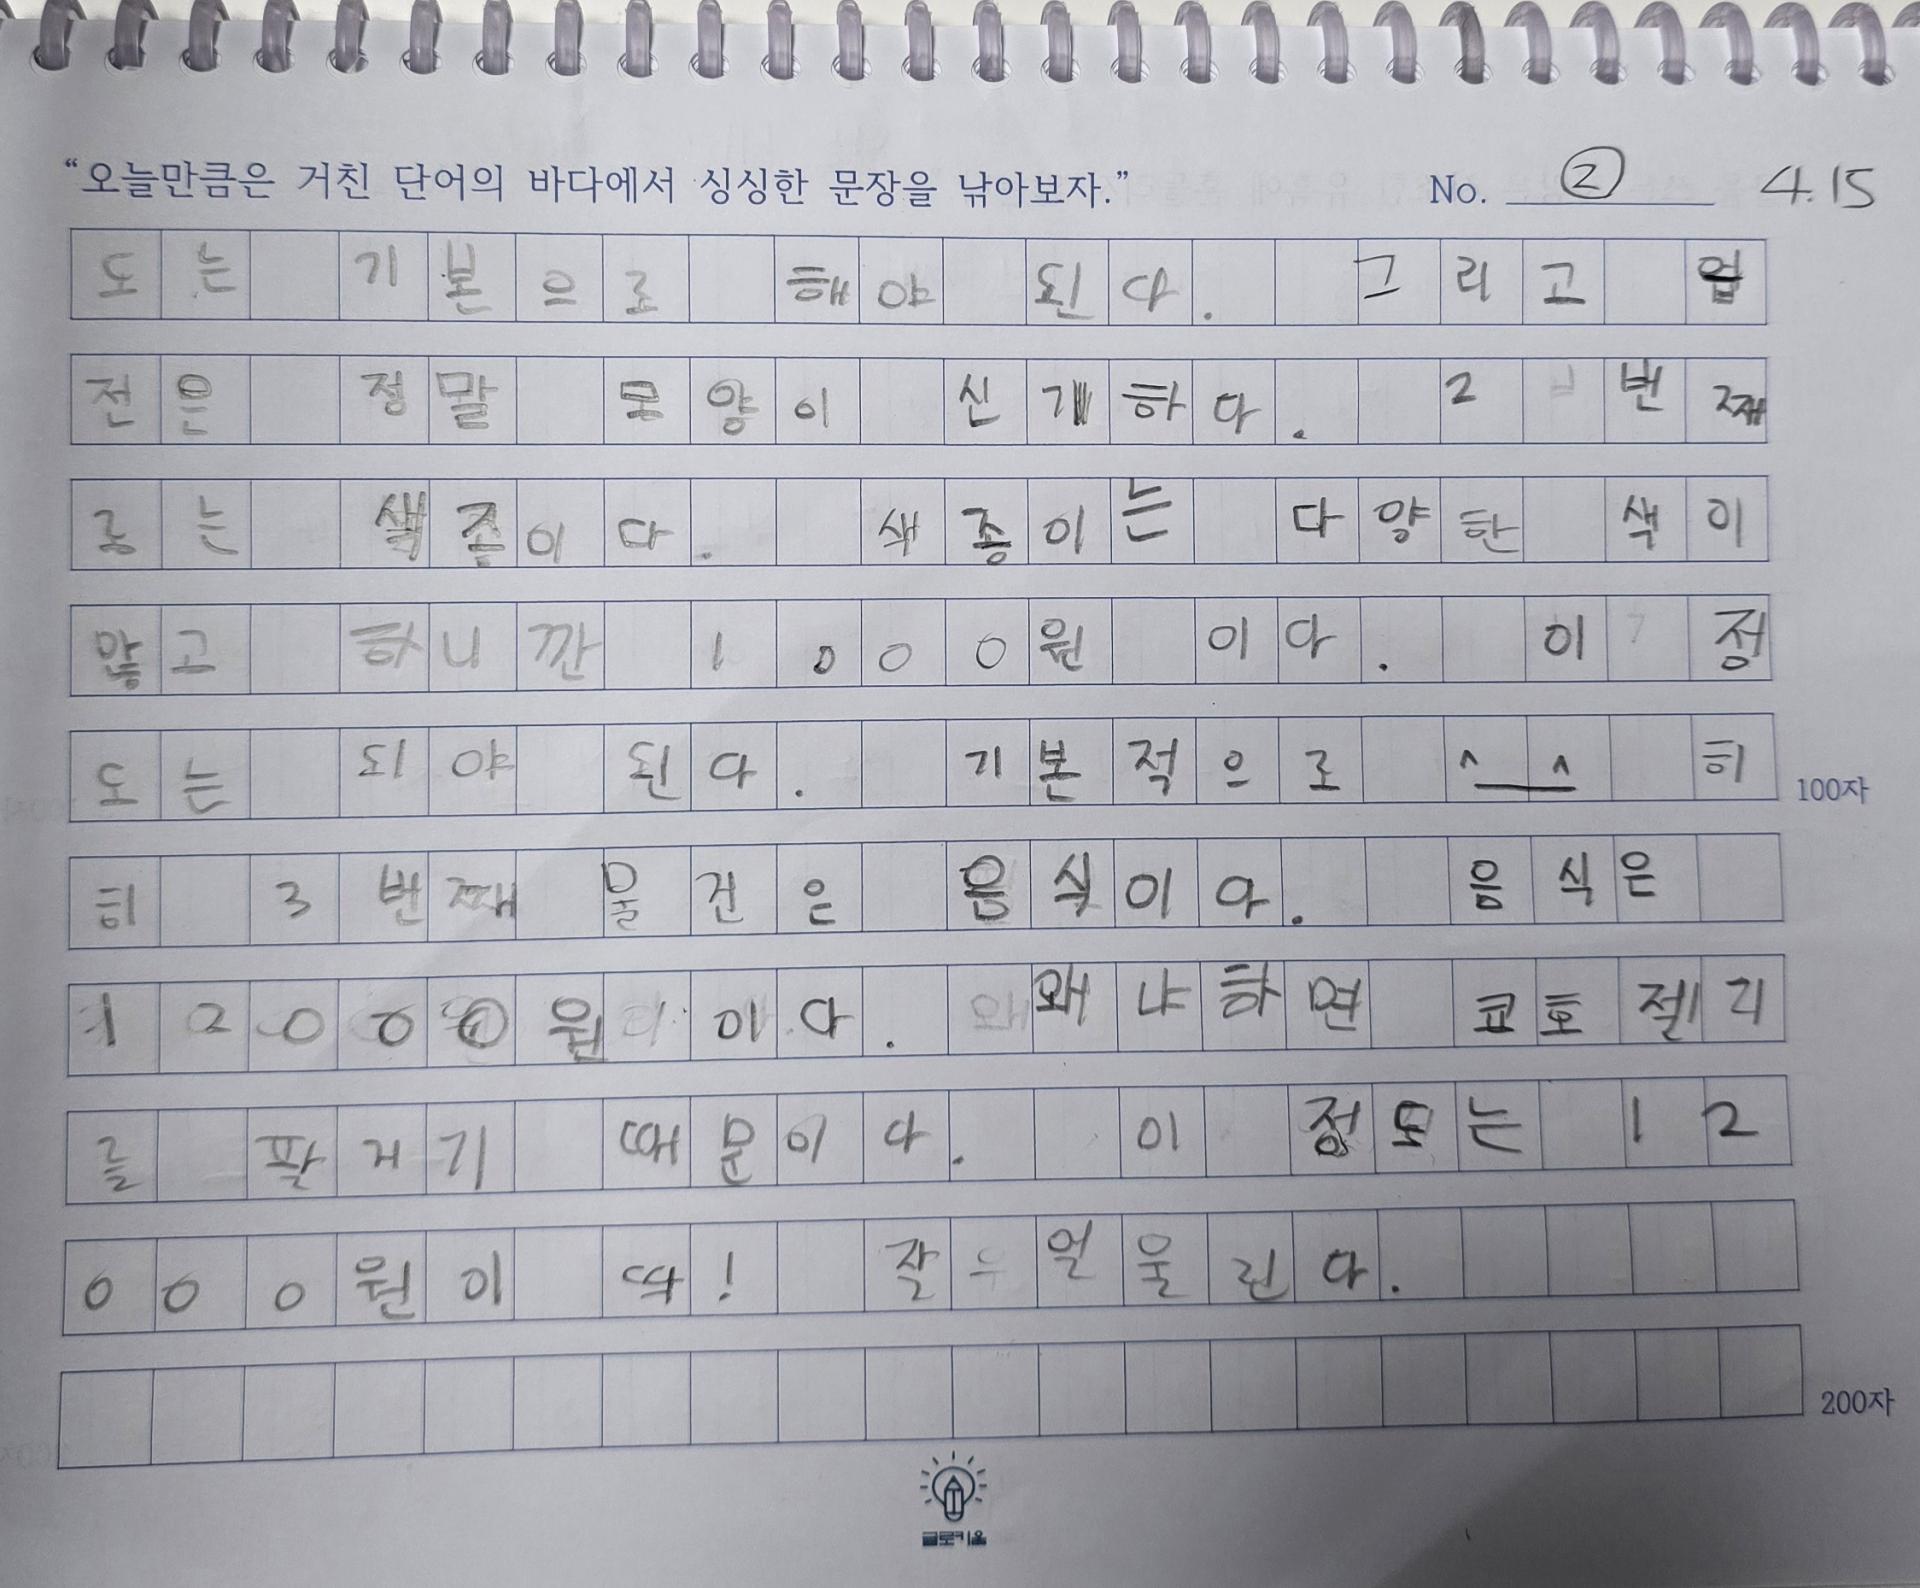 “오늘만큼은 거친 단어의 바다에서 싱싱한 문장을 낚아보자.” No. ② 4.15
도는 기본으로 해야 된다. 그리고 엽
전은 정말 모양이 신개하다. 2번째
로는 색종이다. 색종이는 다양한 색이
많고 하니깐 1000원 이다. 이 정
도는 되야 된다. 기본적으로 ^__^ 히
히 3번째 물건은 음식이다. 음식은
12000원 이다. 왜냐하면 쿄호젤리
를 팔거기 때문이다. 이 정도는 12
000원이 딱! 잘 얼울린다.
100자
200자
글로키움